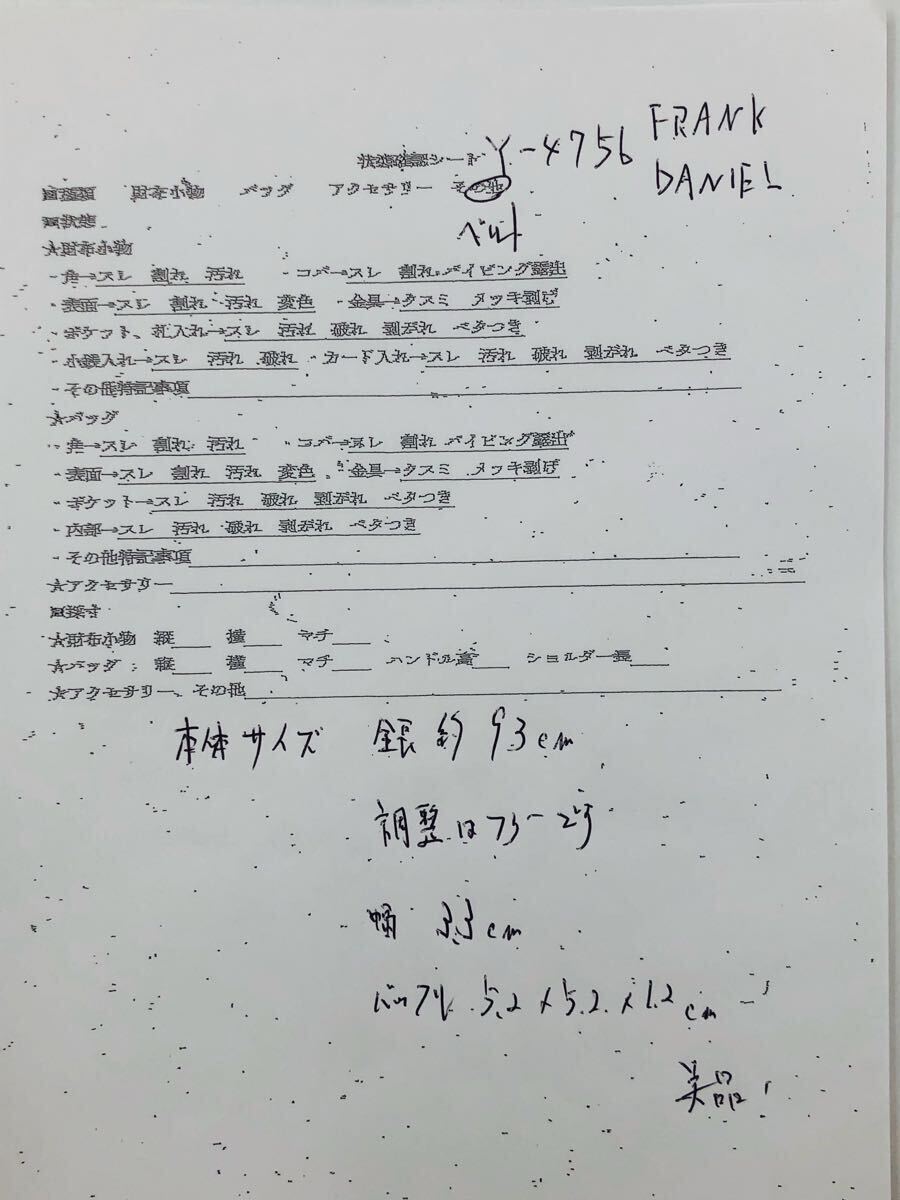 状態確認シート Y-4756 FRANK
DANIEL
□種類 財布小物 バッグ アクセサリー その他
ベルト
□状態
★財布小物
・角→スレ 割れ 汚れ ・コバ→スレ 割れ パイピング露出
・表面→スレ 割れ 汚れ 変色 ・金具→クスミ メッキ剥げ
・ポケット、札入れ→スレ 汚れ 破れ 剥がれ ベタつき
・小銭入れ→スレ 汚れ 破れ ・カード入れ→スレ 汚れ 破れ 剥がれ ベタつき
・その他特記事項
★バッグ
・角→スレ 割れ 汚れ ・コバ→スレ 割れ パイピング露出
・表面→スレ 割れ 汚れ 変色 ・金具→クスミ メッキ剥げ
・ポケット→スレ 汚れ 破れ 剥がれ ベタつき
・内部→スレ 汚れ 破れ 剥がれ ベタつき
・その他特記事項
★アクセサリー
□採寸
★財布小物 縦 横 マチ
★バッグ 縦 横 マチ ハンドル高 ショルダー長
★アクセサリー、その他
本体サイズ 全長 約 93cm
調整は
幅 3.3cm
バックル 5.2×5.2×1.2cm
美品!